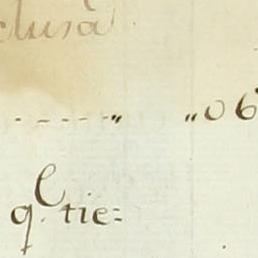 clusa
" " 06
q.^{C} tie: